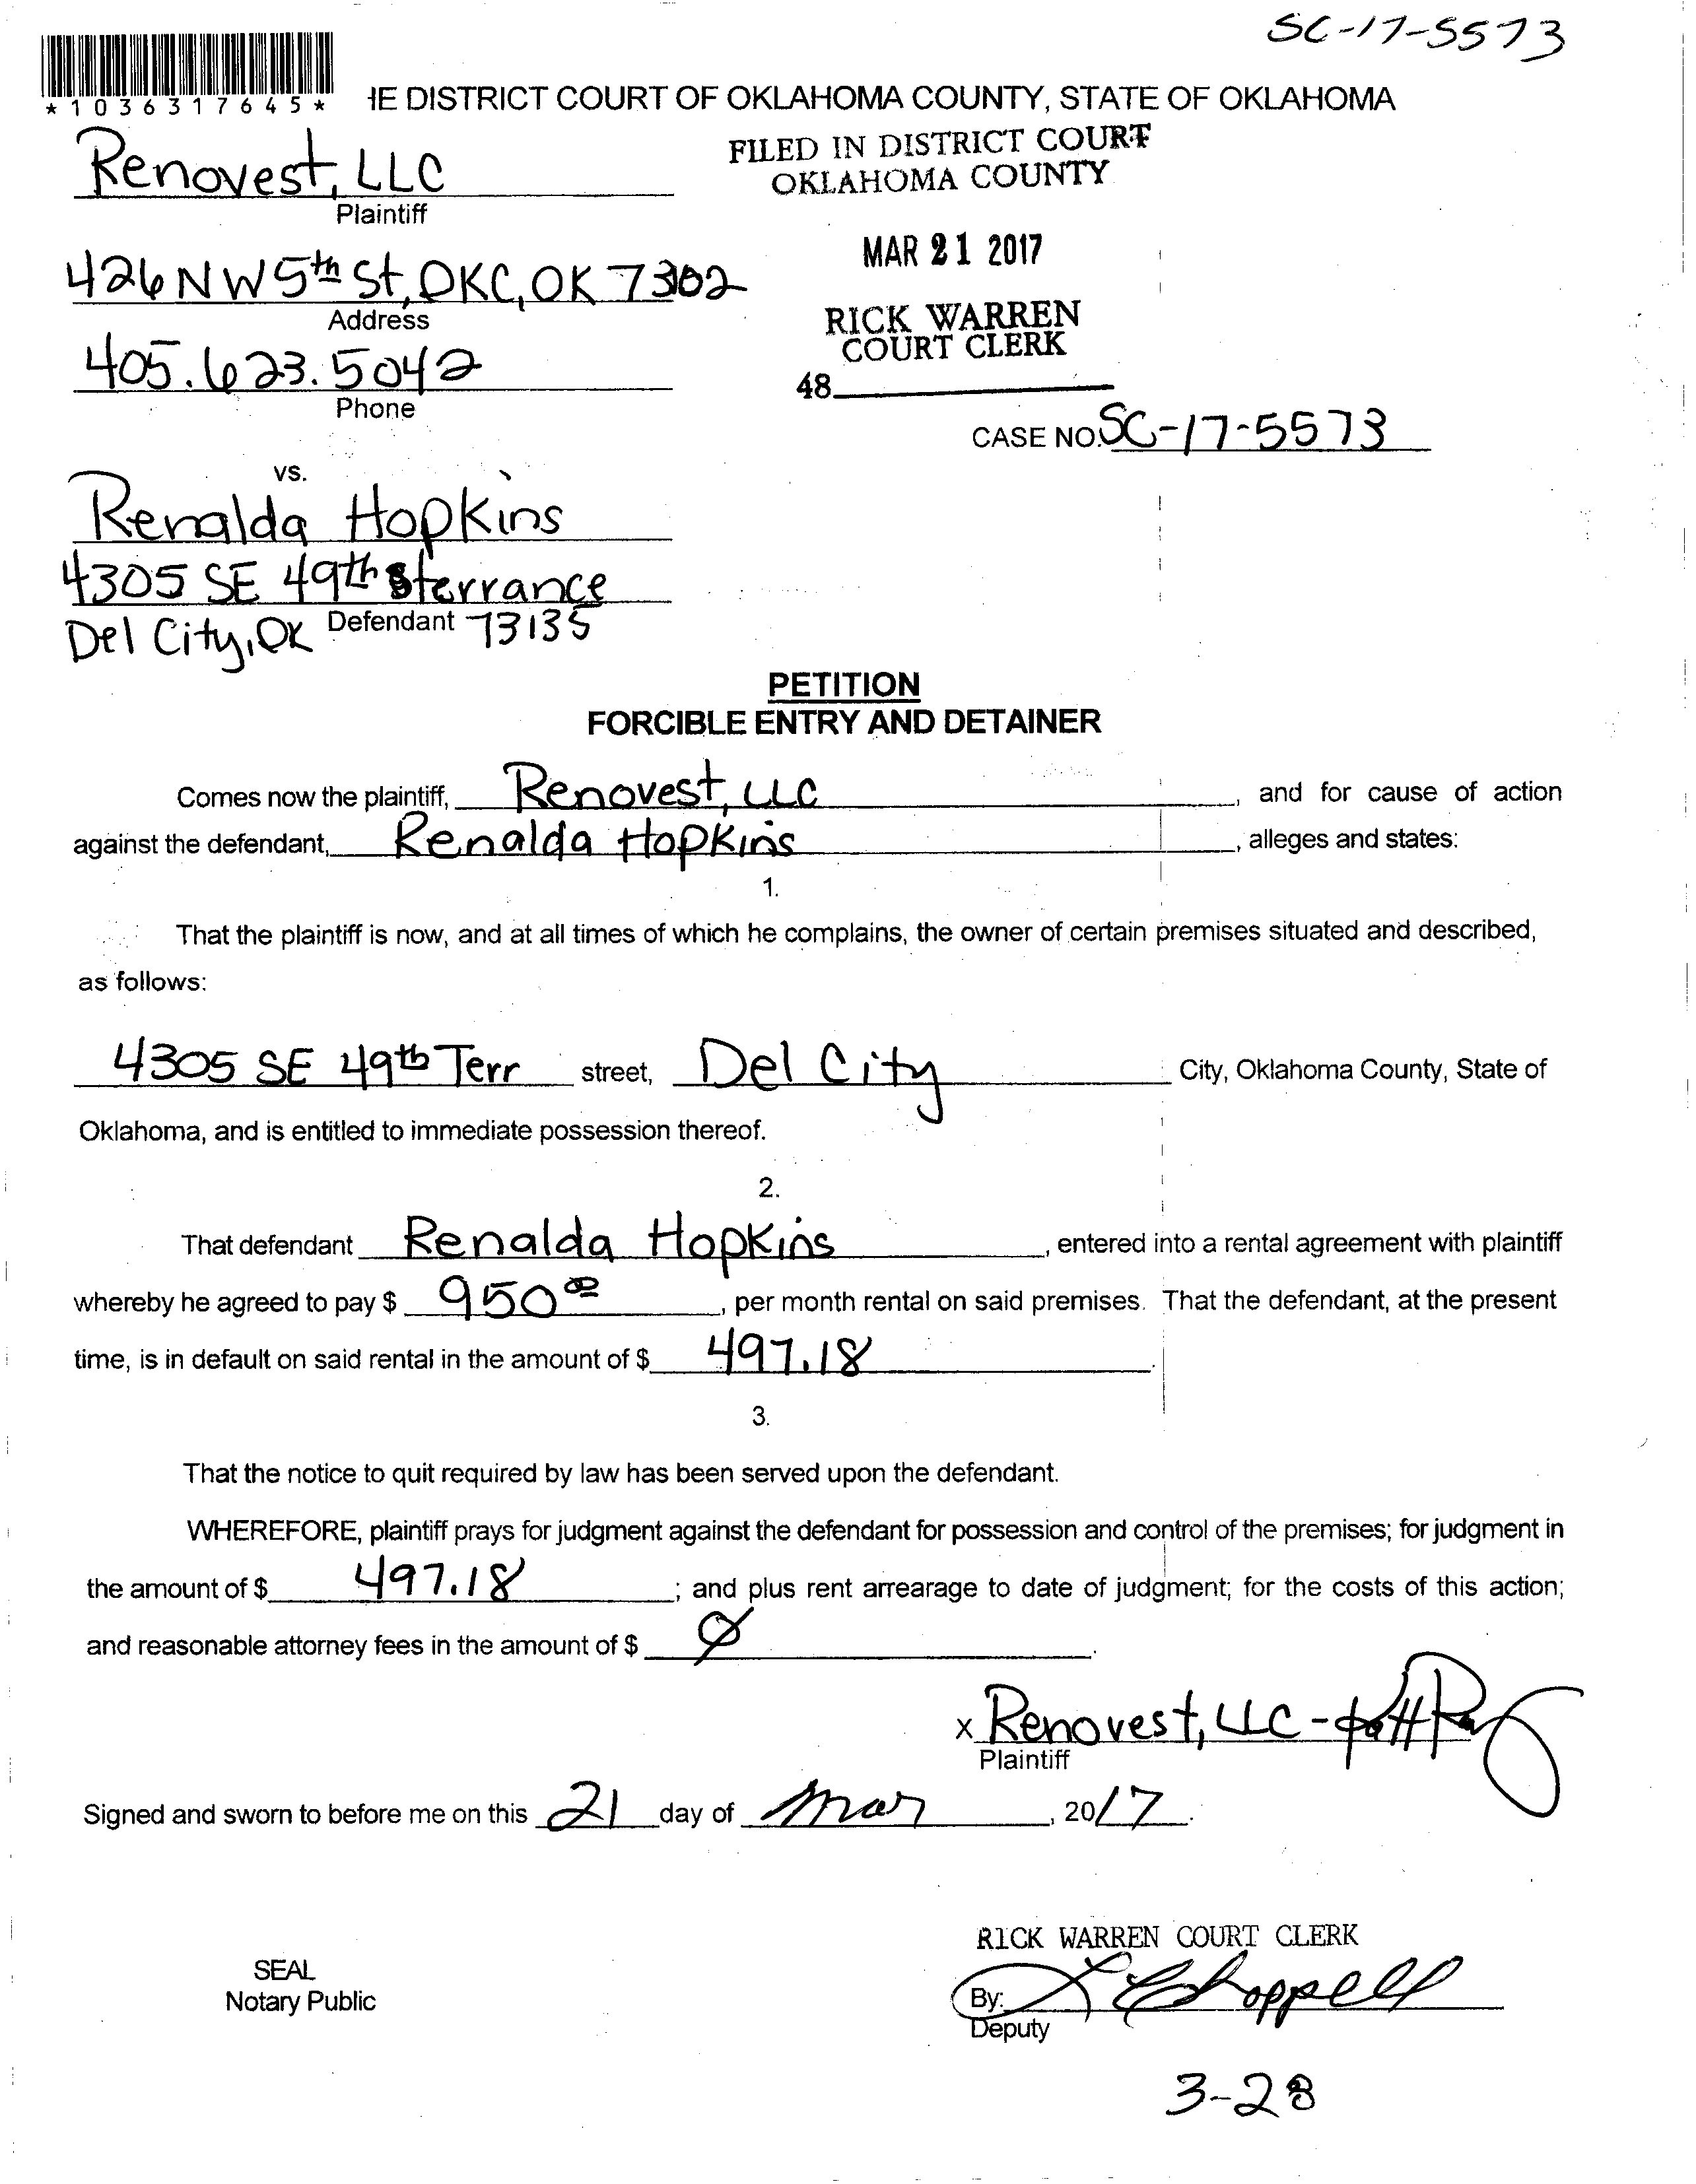 SC-17-5573
*1036317645*
HE DISTRICT COURT OF OKLAHOMA COUNTY, STATE OF OKLAHOMA
Renovest, LLC
Plaintiff
FILED IN DISTRICT COURT
OKLAHOMA COUNTY
MAR 21 2017
426 NW 5th St, OKC, OK 7302
Address
RICK WARREN
COURT CLERK
405.623.5042
Phone
48
CASE NO. SC-17-5573
vs.
Renalda Hopkins
4305 SE 49th terrance
Defendant
Del City, OK 73135
PETITION
FORCIBLE ENTRY AND DETAINER
Comes now the plaintiff, Renovest, LLC, and for cause of action
against the defendant, Renalda Hopkins, alleges and states:
1.
That the plaintiff is now, and at all times of which he complains, the owner of certain premises situated and described,
as follows:
4305 SE 49th Terr street, Del City City, Oklahoma County, State of
Oklahoma, and is entitled to immediate possession thereof.
2.
That defendant Renalda Hopkins, entered into a rental agreement with plaintiff
whereby he agreed to pay $ 950 00, per month rental on said premises. That the defendant, at the present
time, is in default on said rental in the amount of $ 497.18.
3.
That the notice to quit required by law has been served upon the defendant.
WHEREFORE, plaintiff prays for judgment against the defendant for possession and control of the premises; for judgment in
the amount of $ 497.18; and plus rent arrearage to date of judgment; for the costs of this action;
and reasonable attorney fees in the amount of $ Ø.
x Renovest, LLC -
Plaintiff
Signed and sworn to before me on this 21 day of Mar, 2017.
RICK WARREN COURT CLERK
SEAL
Notary Public
By: Choppell
Deputy
3-28